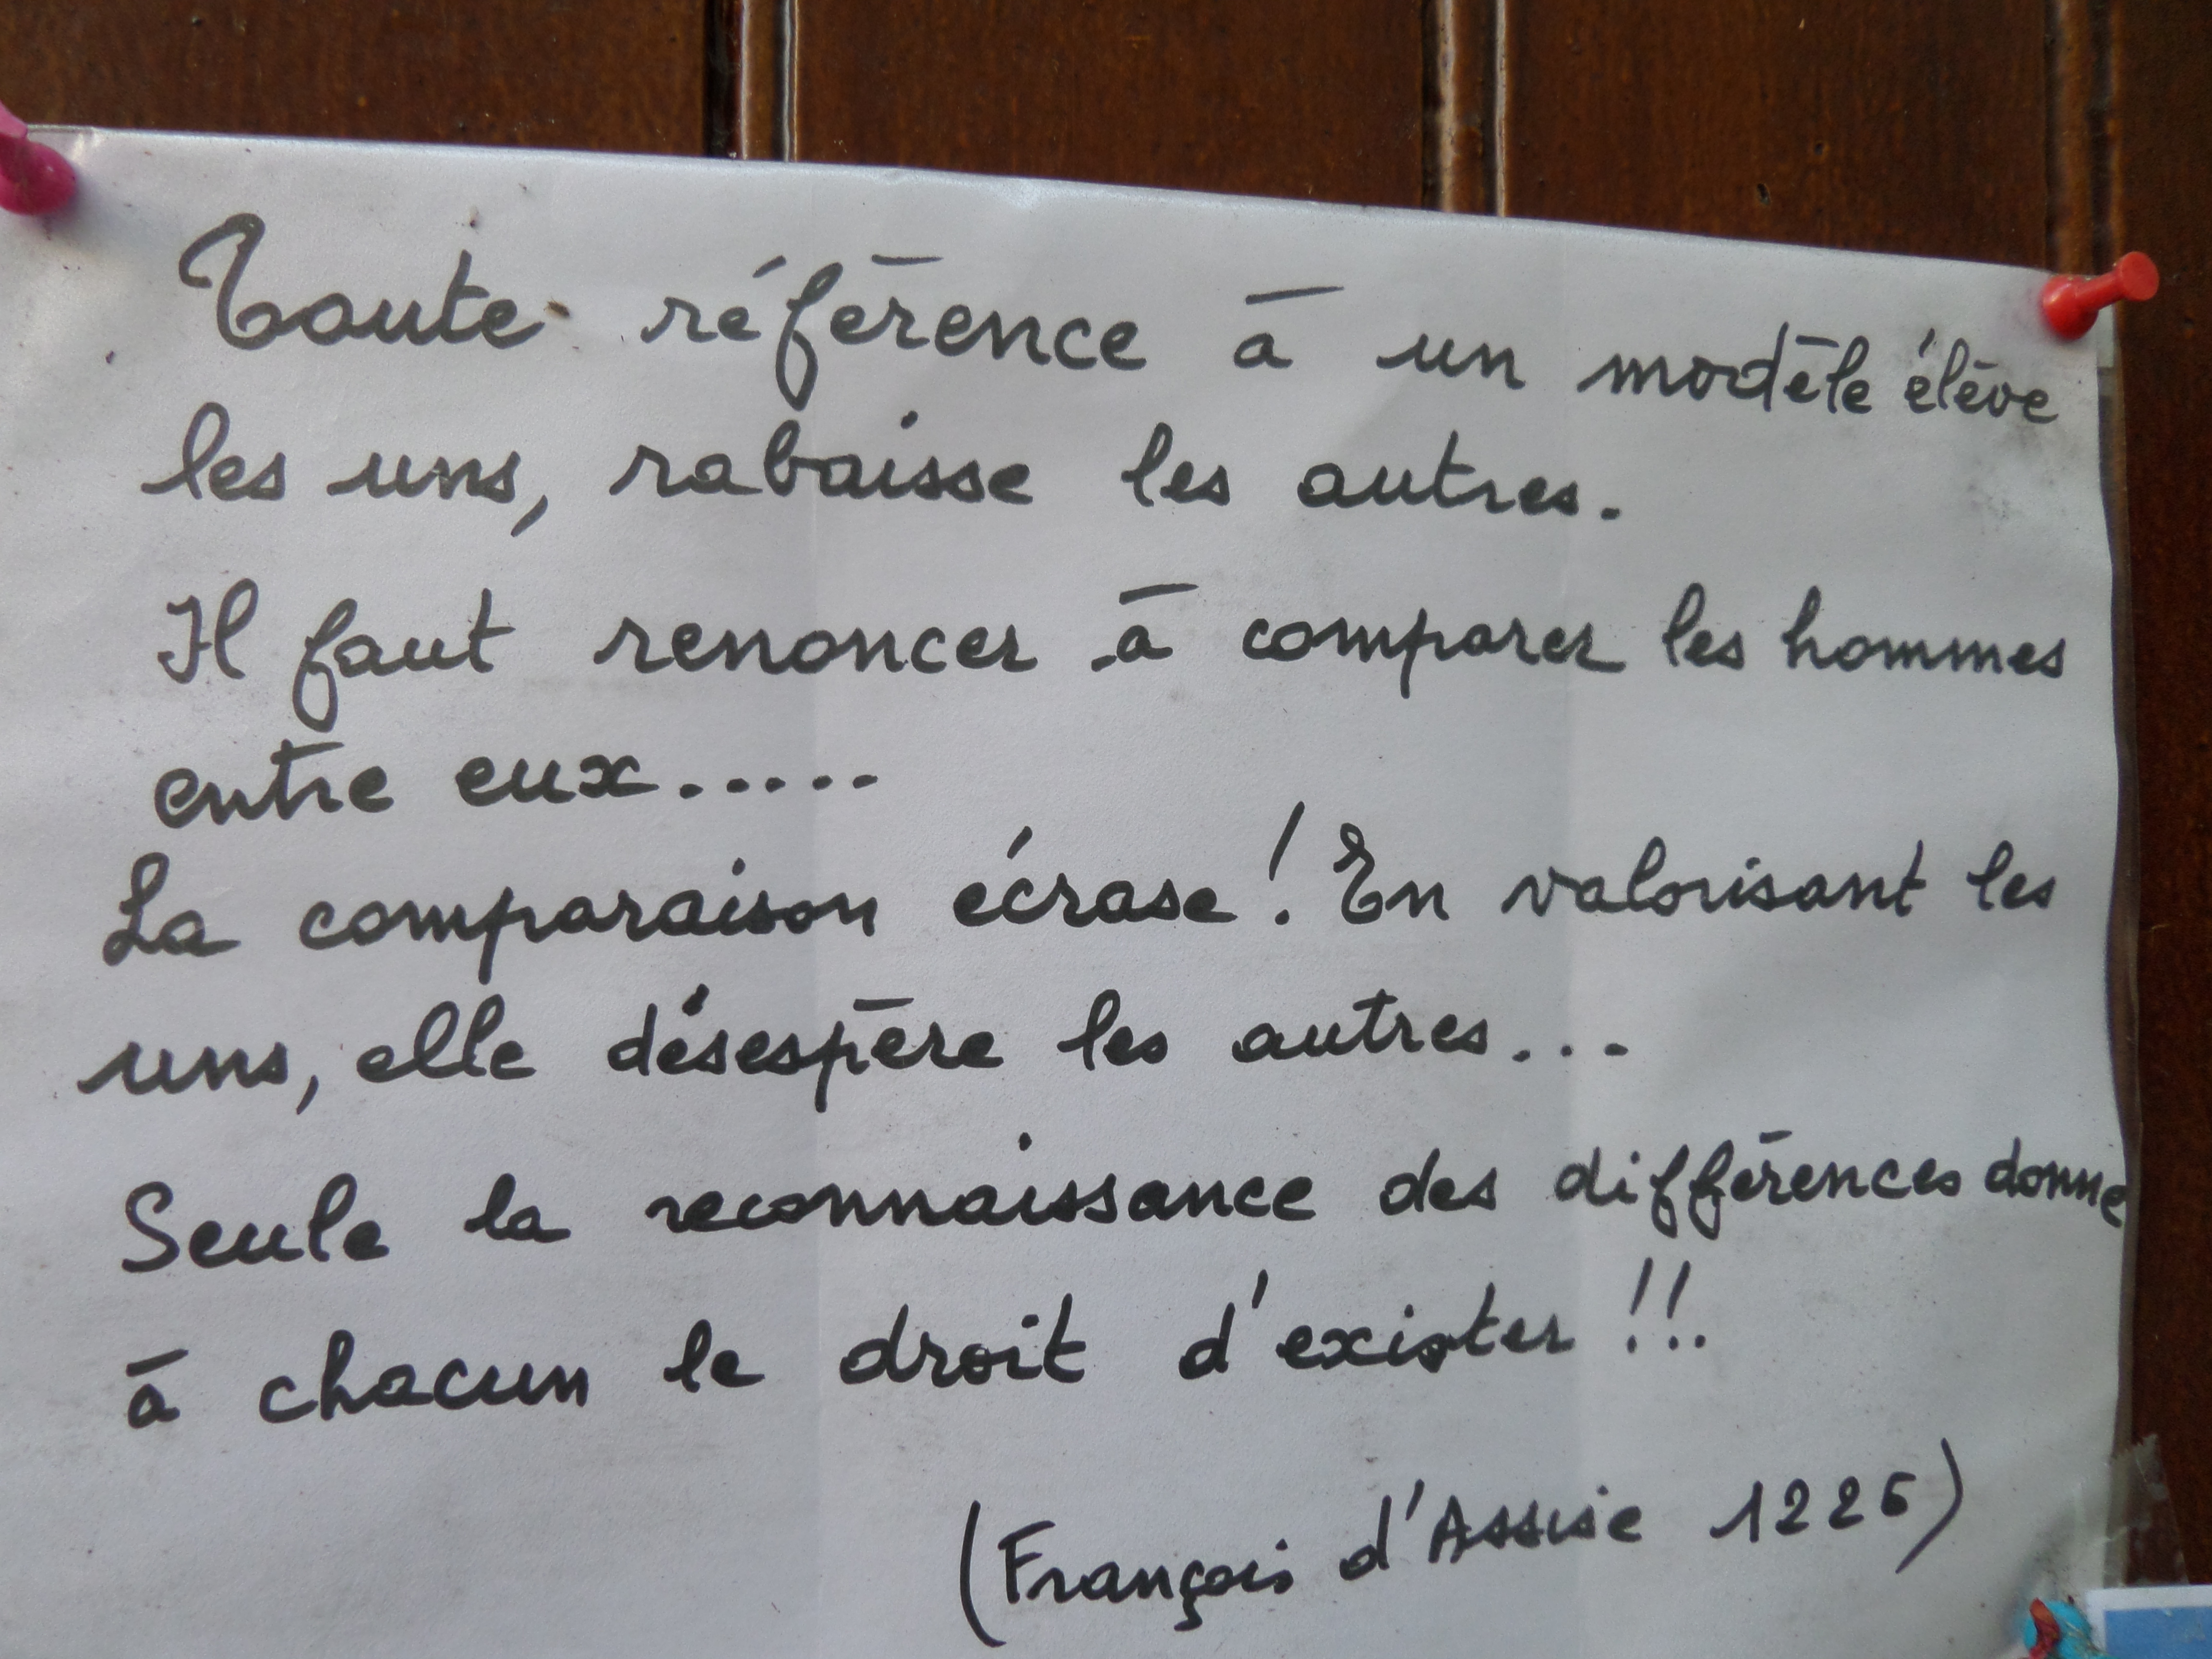 Toute référence à un modèle élève
les uns, rabaisse les autres.
Il faut renoncer à comparer les hommes
entre eux.....
La comparaison écrase! En valorisant les
uns, elle désespère les autres...
Seule la reconnaissance des différences donne
à chacun le droit d'exister !!.
(François d'Assise 1226)